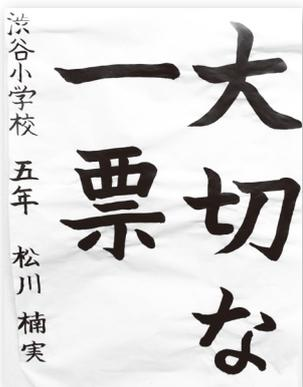 大切な
一票
渋谷小学校 五年 松川楠実